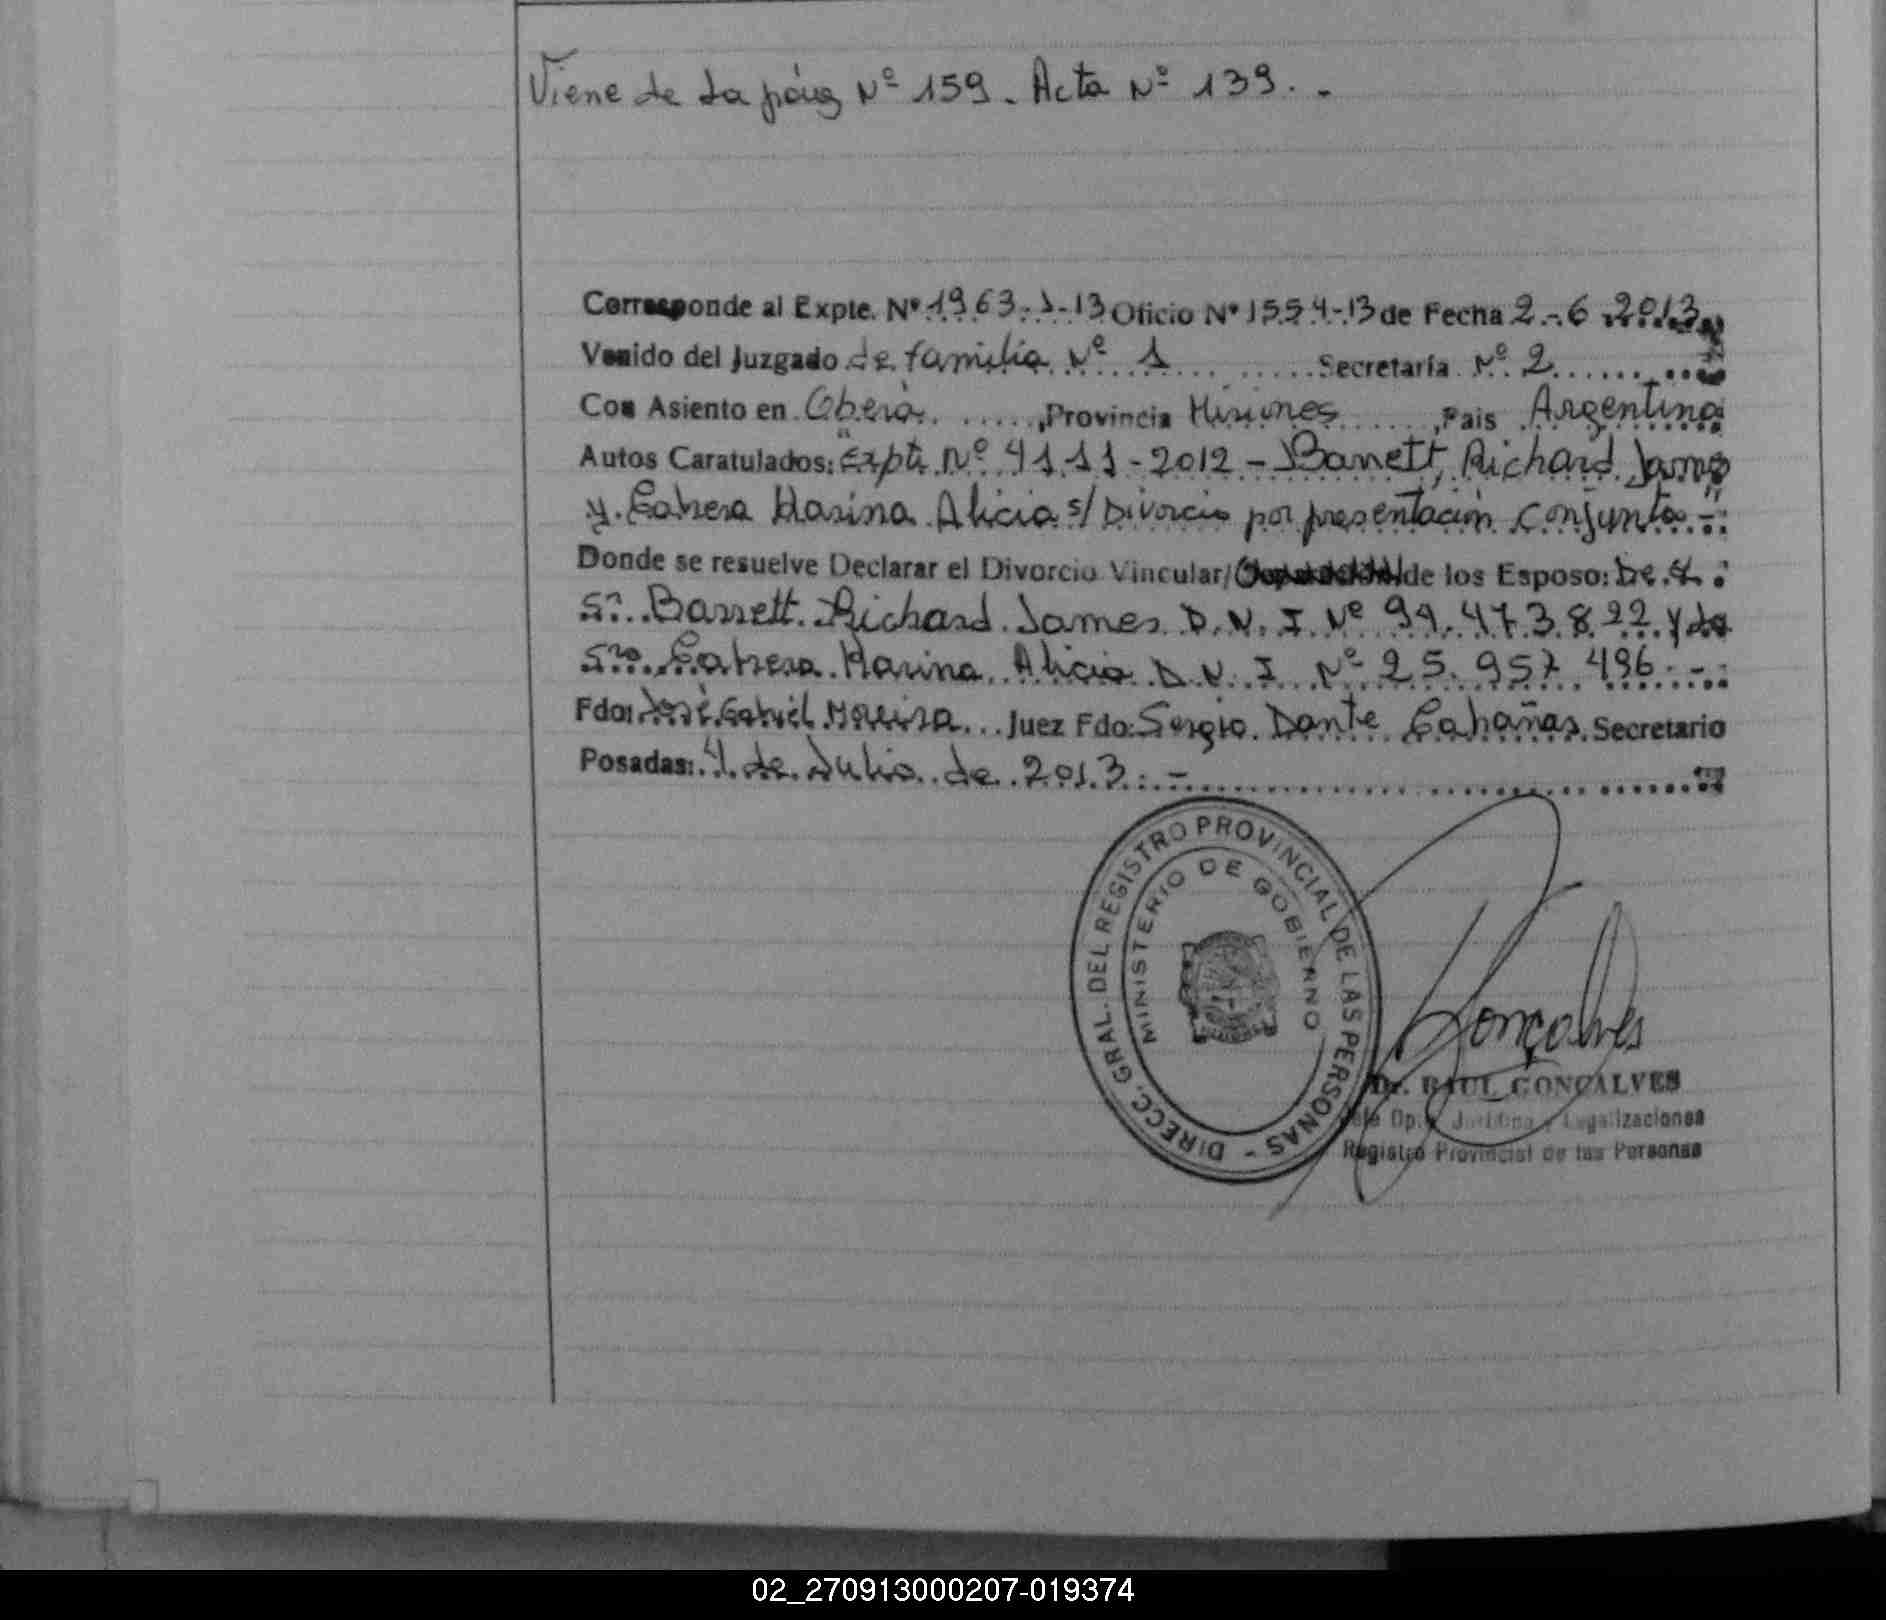 Viene de la pág Nº 159. Acta Nº 139. -
Corresponde al Expte. Nº 1963-1-13 Oficio Nº 1554-13 de Fecha 2-6-2013
Venido del Juzgado de familia Nº 1 Secretaría Nº 2
Con Asiento en Oberá, Provincia Misiones, Pais Argentina
Autos Caratulados: "Expte Nº 4111-2012 - Barrett, Richard James
y Cabrera Marina Alicia s/ Divorcio por presentación conjunta -"
Donde se resuelve Declarar el Divorcio Vincular/ de los Esposo: Del
Sr. Barrett Richard James D.N.I. Nº 94.473.822 y de la
Sra. Cabrera Marina Alicia D.N.I. Nº 25.957.496. -
Fdo: José Gabriel Moreira Juez Fdo: Sergio Dante Cabañas Secretario
Posadas: 4 de Julio de 2013. -
DIRECC. GRAL. DEL REGISTRO PROVINCIAL DE LAS PERSONAS -
MINISTERIO DE GOBIERNO
Gonçalves
Dr. RAUL GONÇALVES
Jefe Dpto. Jurídico y Legalizaciones
Registro Provincial de las Personas
02_270913000207-019374